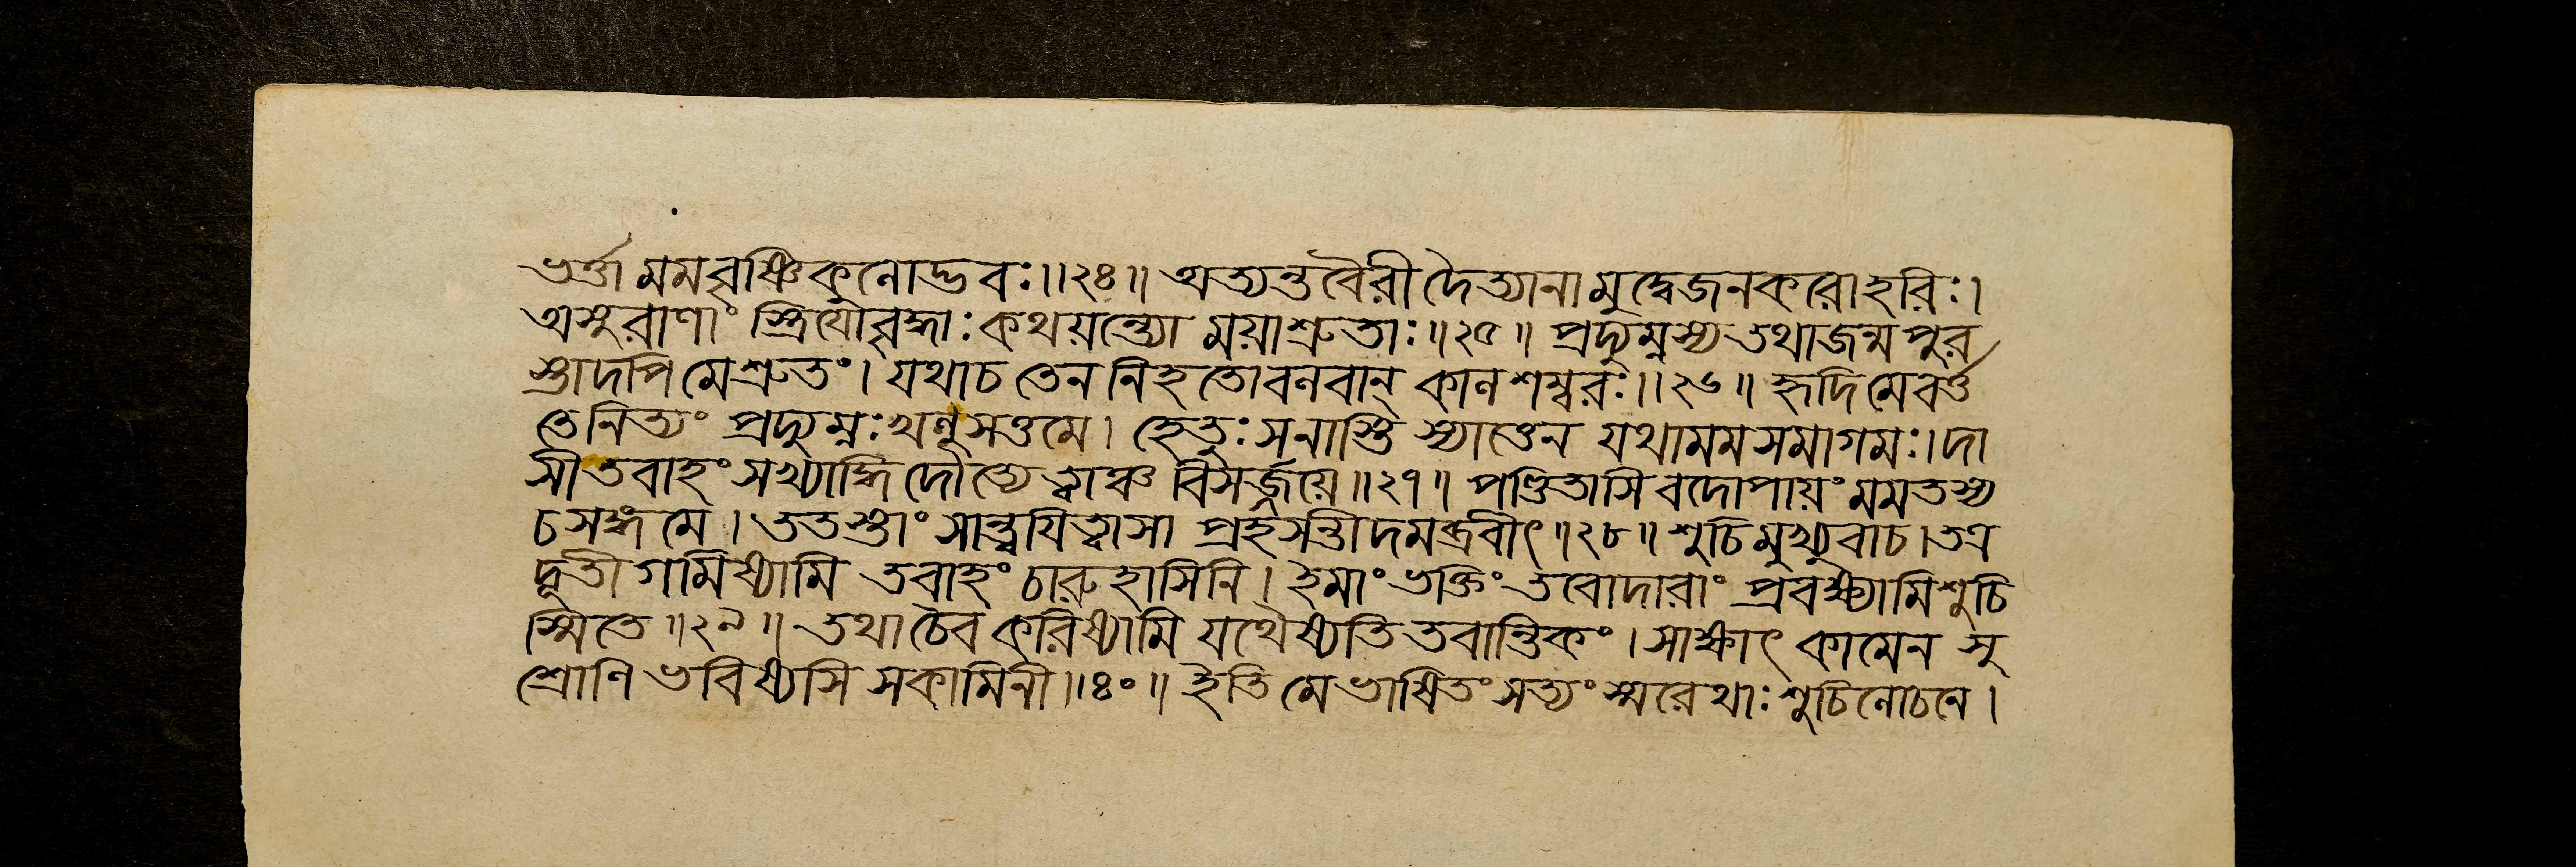 ভর্ত্তা মম বৃষ্ণিকুলোদ্ভবঃ॥২৪॥ অত্যন্তবৈরী দৈত্যানামুদ্বেজনকরো হরিঃ।
অসুরাণাং স্ত্রিয়ো বৃদ্ধাঃ কথয়ন্ত্যো ময়া শ্রুতাঃ॥২৫॥ প্রদ্যুম্নস্য তথা জন্ম পুর
স্তাদপি মে শ্রুতং। যথা চ তেন নিহতো বলবান্ কালশম্বরঃ॥২৬॥ হৃদি মে বর্ত্ত
তে নিত্যং প্রদ্যুম্নঃ খলু সত্তমে। হেতুঃ স নাস্তি স্যাত্তেন যথা মম সমাগমঃ। দা
সী তবাহং সখ্যার্হি দৌত্যে ত্বাঞ্চ বিসর্জ্জয়ে॥২৭॥ পণ্ডিতাসি বদোপায়ং মম তস্য
চ সঙ্গমে। ততস্তাং সান্ত্বয়িত্বা সা প্রহসন্তীদমব্রবীৎ॥২৮॥ শুচিমুখ্যুবাচ। তত্র
দূতী গমিষ্যামি তবাহং চারুহাসিনি। ইমাং ভক্তিং তবোদারাং প্রবক্ষ্যামি শুচি
স্মিতে॥২৯॥ তথা চৈব করিষ্যামি যথৈষ্যতি তবান্তিকং। সাক্ষাৎ কামেন সু
শ্রোণি ভবিষ্যসি সকামিনী॥৪০॥ ইতি মে ভাষিতং সত্যং স্মরেথাঃ শুচিলোচনে।